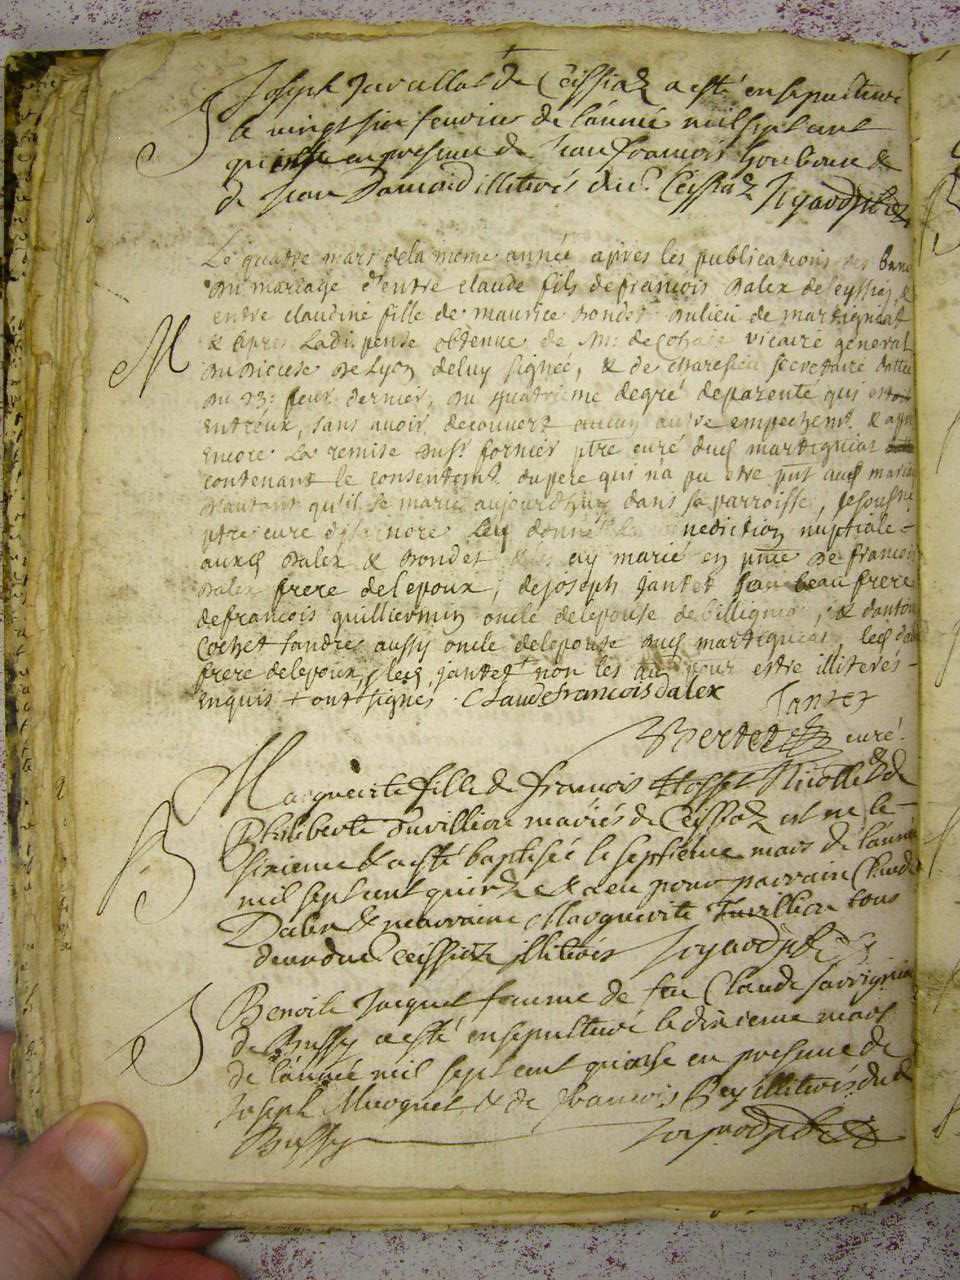 S
Joseph Juvallat de Ceissiaz a esté ensepulturé
le vingt six fevrier de l'année mil sept cent
quinse en presence de Jean François de
de Jean illiterés dud. Ceissiaz
M
Le quatre mars de la meme année apres les publications des
du mariage d'entre claude fils de francois Dalex de seyssiaz, &
entre claudine fille de maurice Bondet du lieu de martignat
& apres La dispense obtenue de Mr. de vicaire general
du diocese de Lyon de luy signée, & de secretaire dattée
du 23: feur. dernier, du quatrieme degré de parenté qui
entreux, sans avoir decouvert aucun autre empechemt. &
encore La remise du sr. fornier ptre curé dud martignat
contenant le consentemt. du pere qui n'a pu etre pnt aud
d'autant qu'il se marie aujourdhuy dans sa parroisse, je soussigné
ptre curé la benediction nuptiale
auxd Dalex & Bondet & les ay marié en pnce de francois
Dalex frere de lepoux, de joseph jantet beau frere
de francois quilliermin oncle de lepouse de billignat, & d'antoine
Cochet tandre aussy oncle de lepouse dud martignat, led
frere de lepoux, & led. jantet non les au pour estre illiterés
enquis + ont signés. Claude francois dalex Jantet
Bertet curé.
B
Marguerite fille de francois Nicollet & de
Philiberte Juvillion mariés de Ceissiaz est né le
sixieme & a esté baptisée le septieme mars de l'année
mil sept cent quinze & a eu pour parrain Claude
Dalex & marraine Marguerite Juvillion tous
deux dud. Ceissiaz illiterés
S
Benoite Jacquet femme de feu Claude Savrignin
de Bussy a esté ensepulturé le dixieme mars
de l'année mil sept cent quinse en presence de
Joseph Marquet & de francois Rey illiterés dud
Bussy